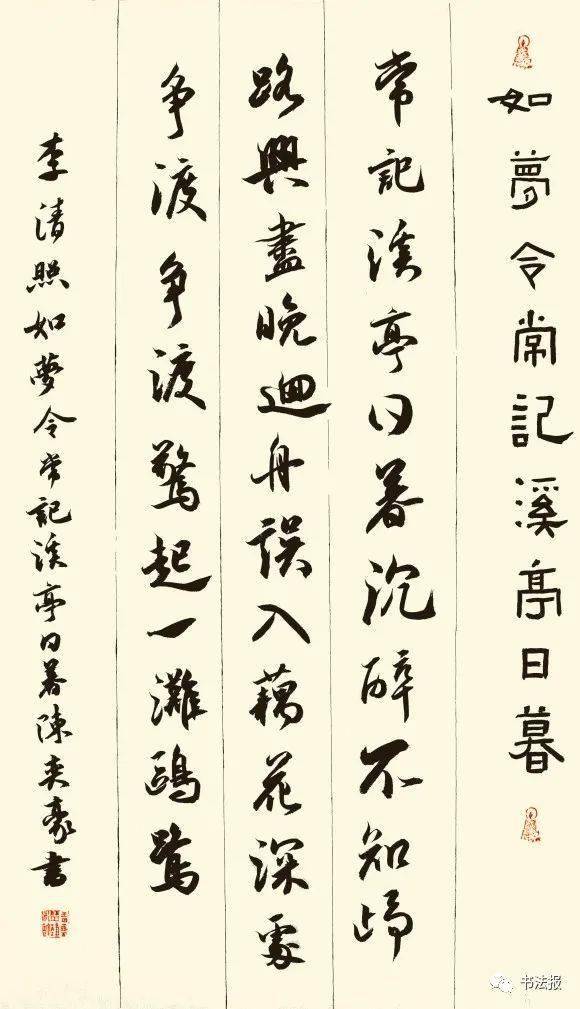 如夢令常記溪亭日暮
常記溪亭日暮沉醉不知歸
路興盡晚迴舟誤入藕花深處
争渡争渡驚起一灘鷗鷺
李清照如夢令常記溪亭日暮陳奕豪書
书法报